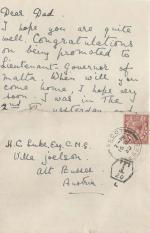 Dear Dad.
I hope you are quite
well. Congratulations
on being promoted to
Lieutenant-Governor of
malta. When will you
come home, I hope very
soon. I was in the
2nd yesterday and
H.C. Luke, Esq., C.M.G.
Villa
Alt Aussee
Austria.